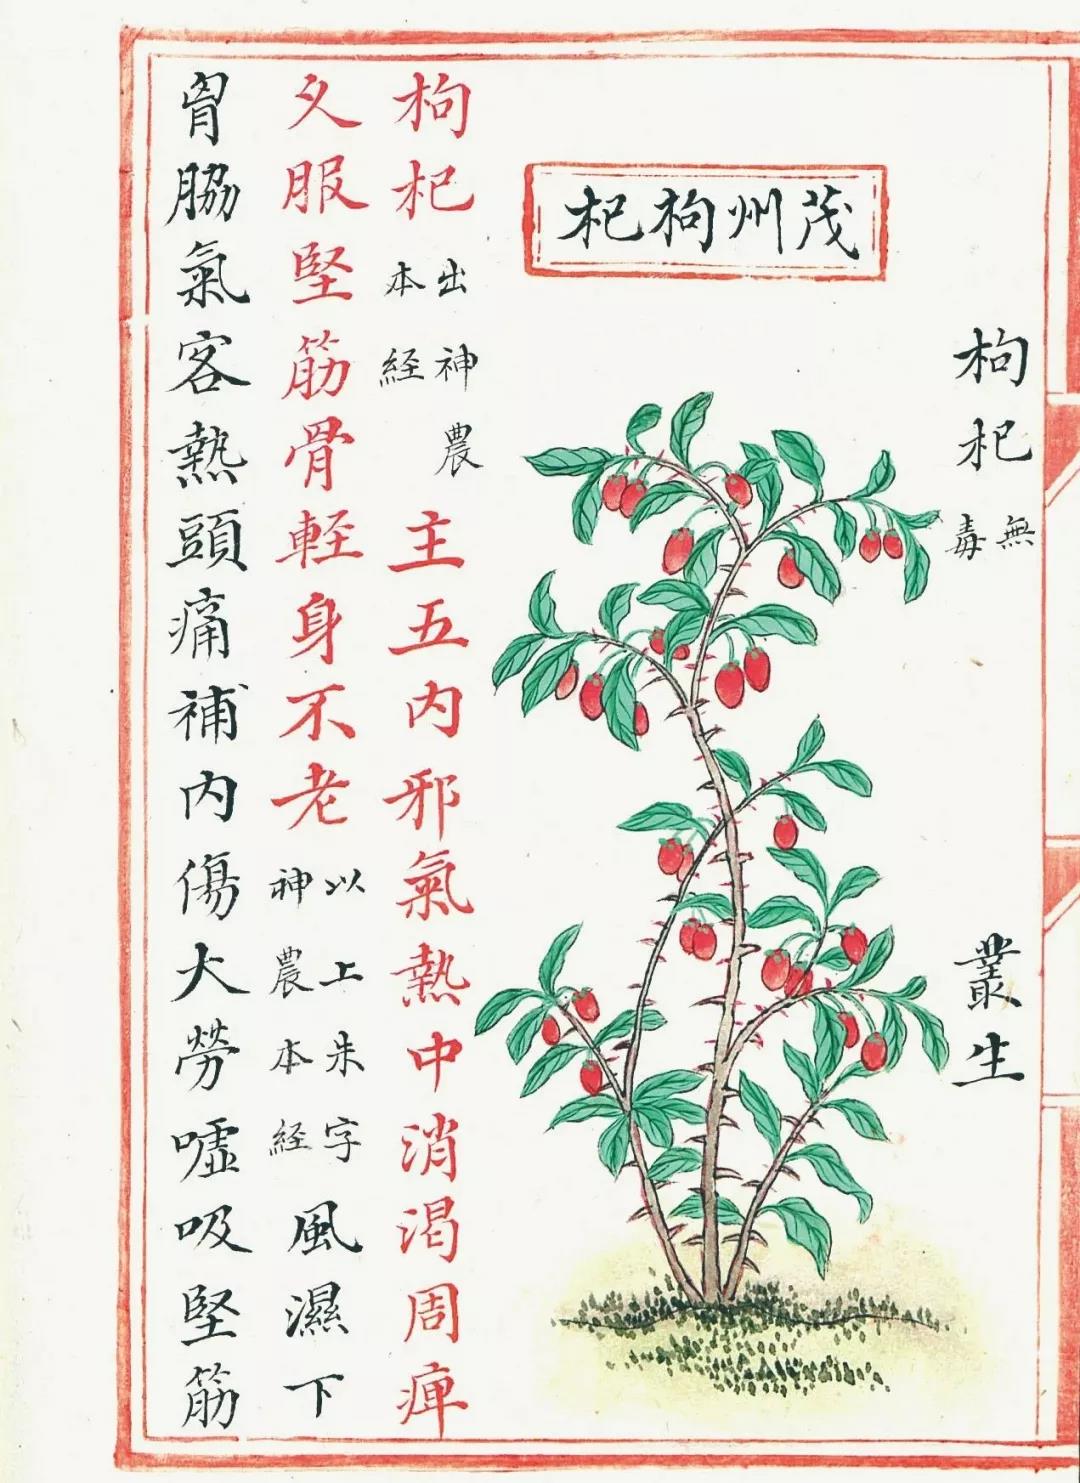 枸杞 無毒
叢生
茂州枸杞
枸杞 出神農本経 主五内邪氣熱中消渇周痺
久服堅筋骨軽身不老 以上朱字神農本経 風濕下
胷脇氣客熱頭痛補内傷大勞噓吸堅筋